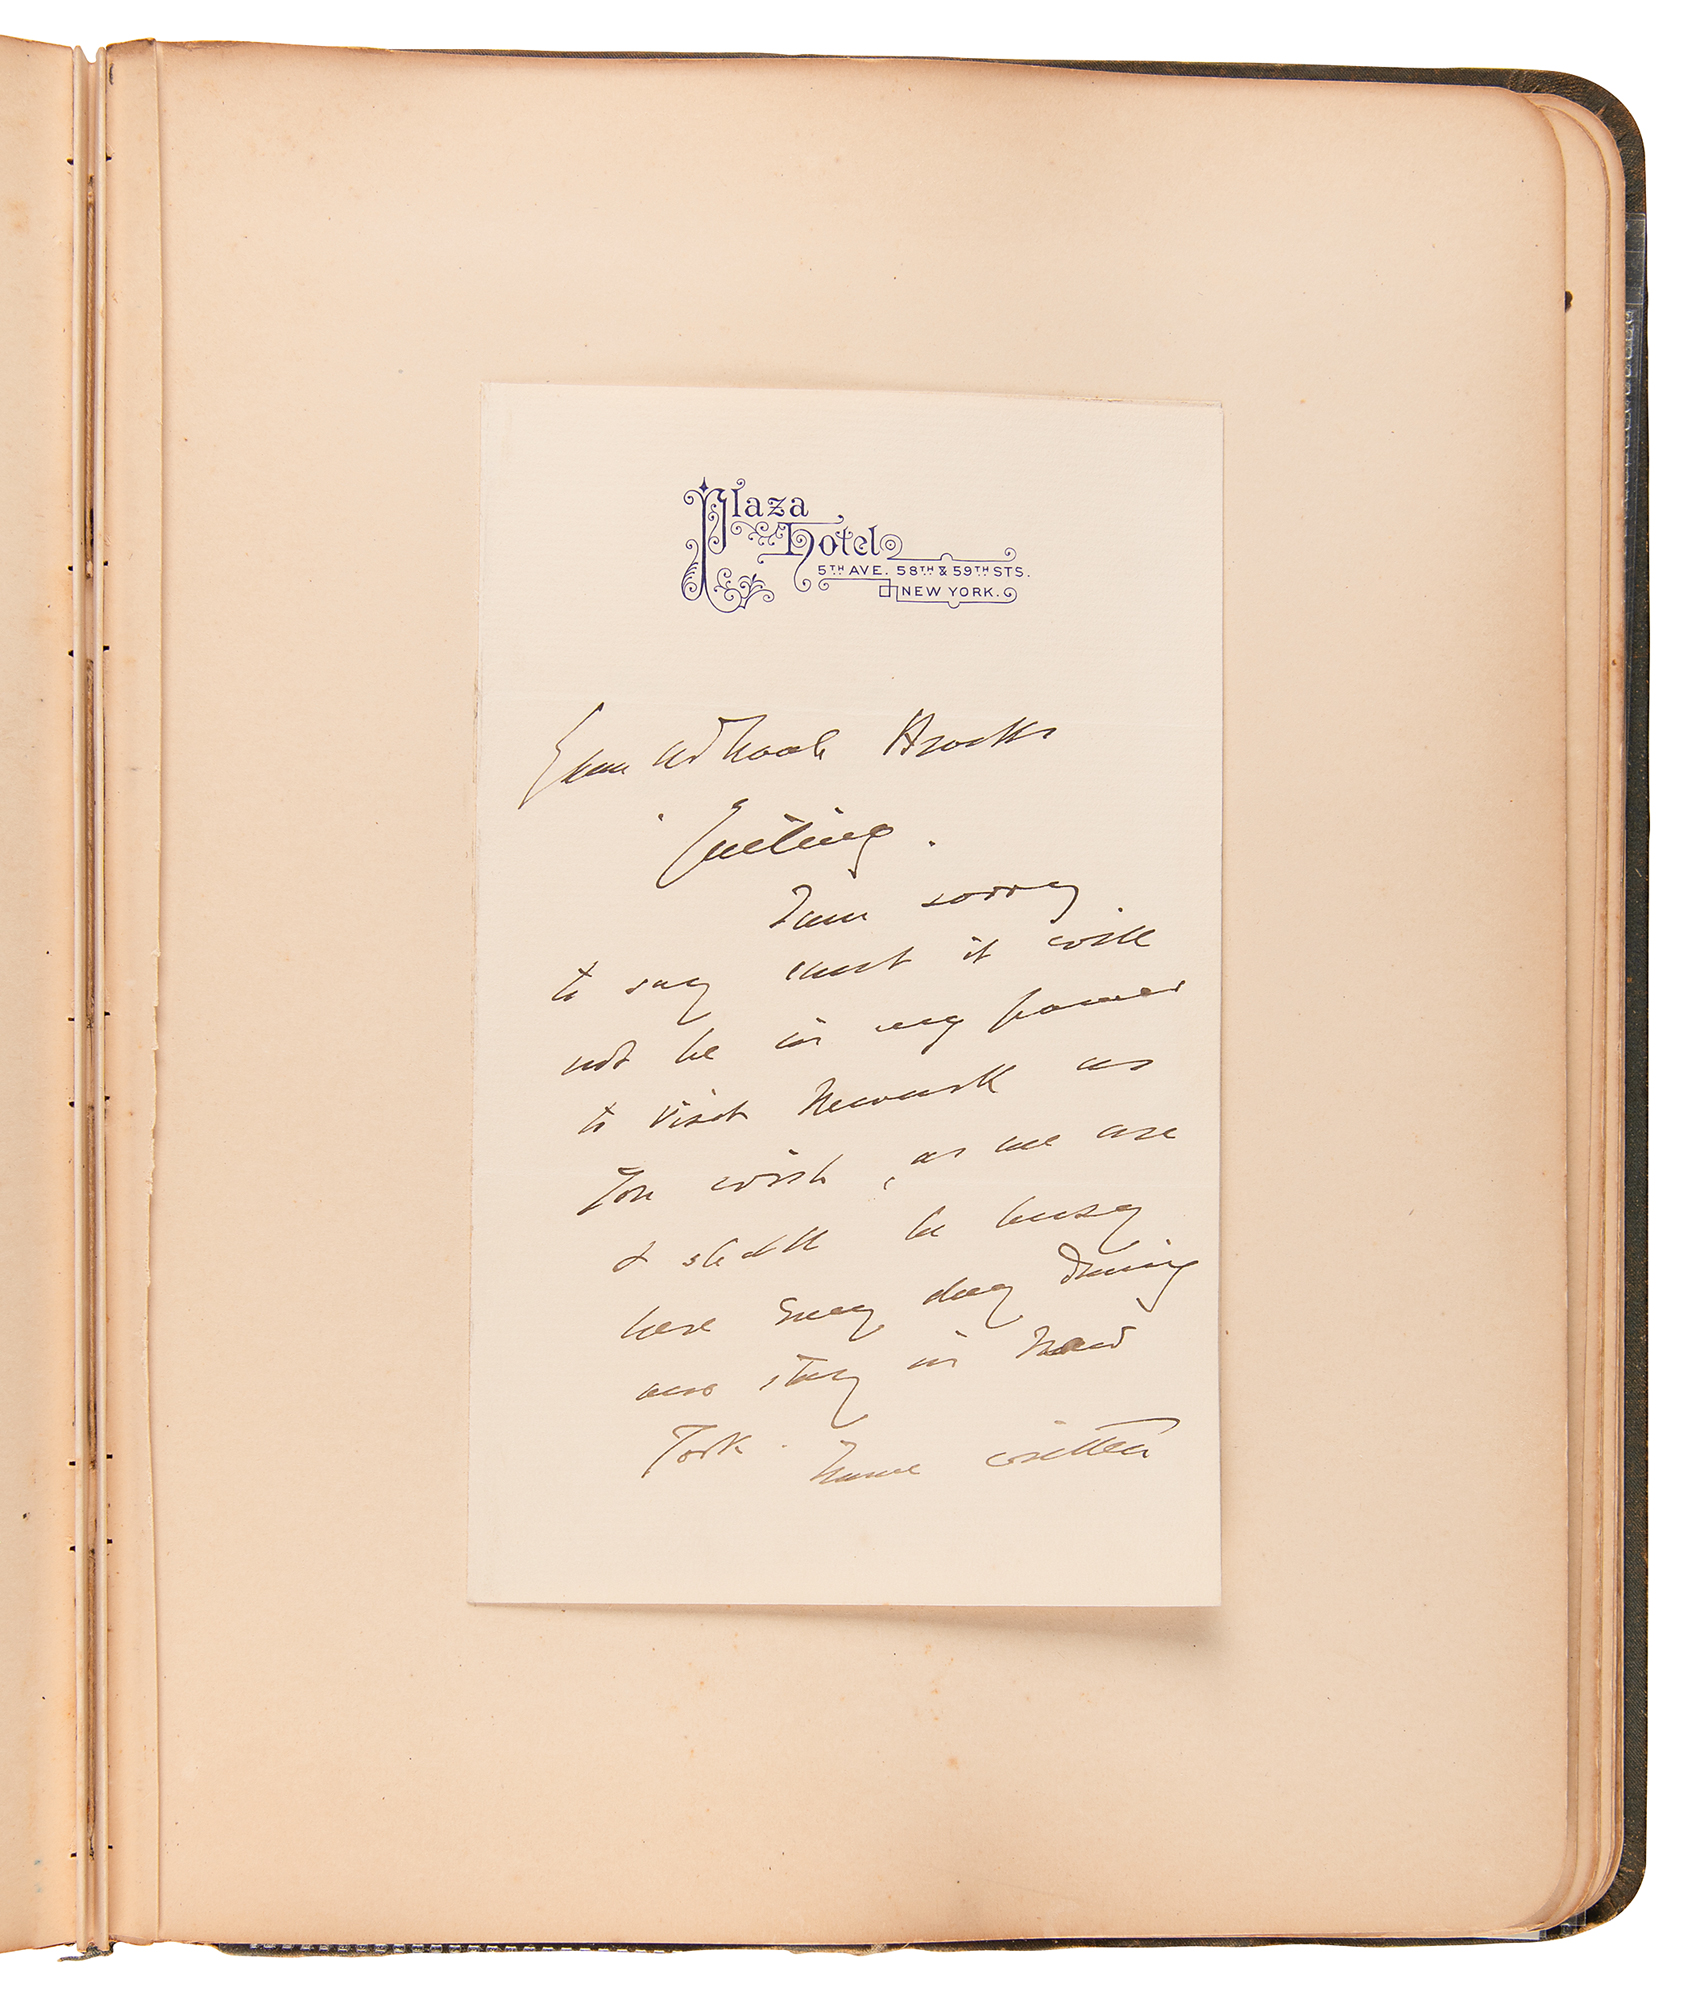 Plaza
Hotel
5TH AVE. 58TH & 59TH STS.
NEW YORK.
Noah Brooks
Greeting.
I am sorry
to say that it will
not be in my power
to visit Newark as
you wish, as we are
& shall be busy
here every day during
our stay in New
York. Have written